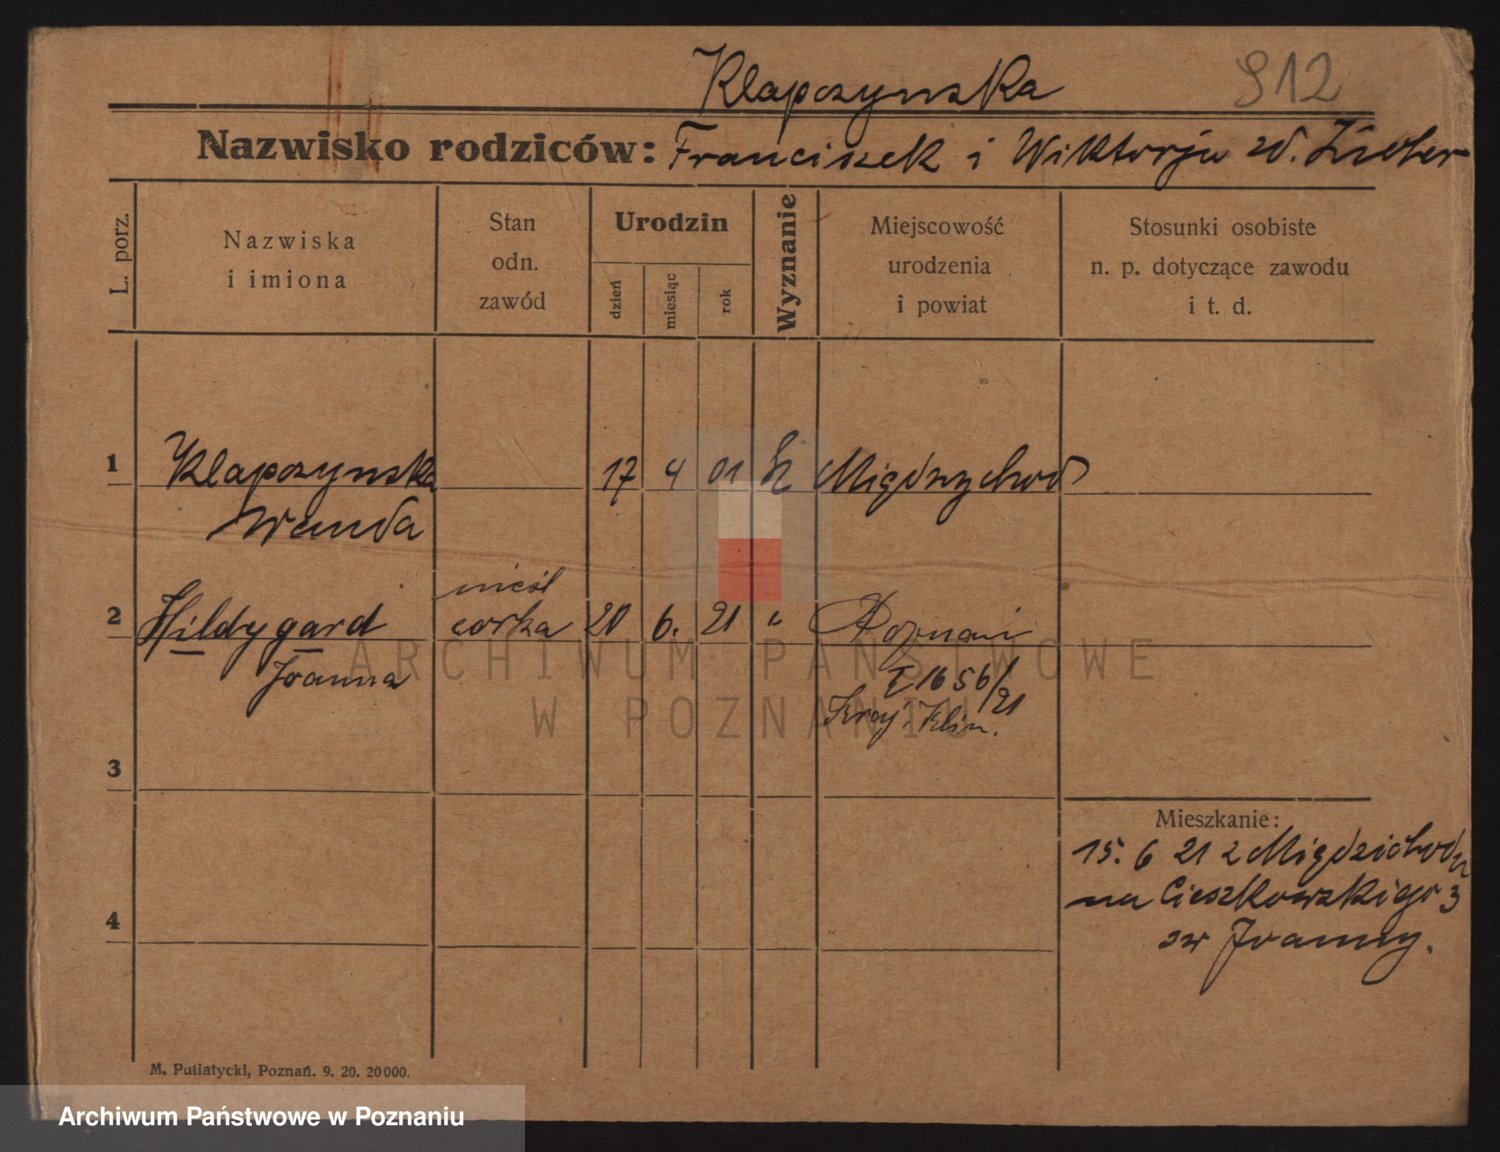 Klapczynska 912
Nazwisko rodziców: Franciszek i Wiktorja zd. Ziober
L. porz.
Nazwiska
i imiona
Stan
odn.
zawód
Urodzin
dzień
miesiąc
rok
Wyznanie
Miejscowość
urodzenia
i powiat
Stosunki osobiste
n. p. dotyczące zawodu
i t. d.
1 Klapczynska 17 4 01 k Międzychod
Wanda
nieśl
2 Hildygard corka 20 6. 21 " Poznań
Joanna I 1656/21
Kraj. Klin.
3
Mieszkanie:
15. 6 21 z Międzichodu
na Cieszkowskiego 3
4
Joanny.
M. Putiatycki, Poznań. 9. 20. 20000.
ARCHIWUM PAŃSTWOWE
W POZNANIU
Archiwum Państwowe w Poznaniu